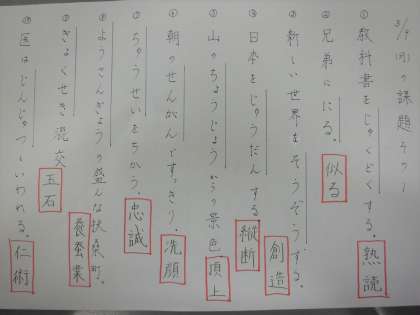 3/9(月)の課題その一
① 教科書をじゅくどくする。 熟読
② 兄弟ににる。 似る
③ 新しい世界をそうぞうする。 創造
④ 日本をじゅうだんする。 縦断
⑤ 山のちょうじょうからの景色 頂上
⑥ 朝のせんがんですっきり。 洗顔
⑦ ちゅうせいをちかう。 忠誠
⑧ ようさんぎょうの盛んな扶桑町。 養蚕業
⑨ ぎょくせき混交 玉石
⑩ 医はじんじゅつといわれる。 仁術